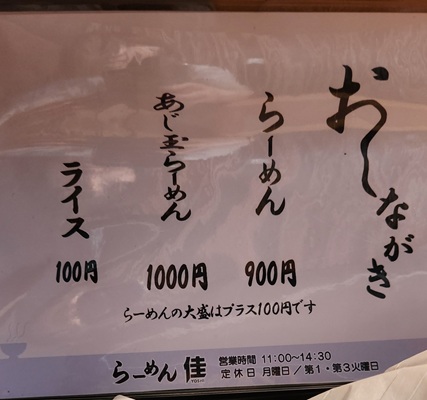 おしながき
らーめん 900円
あじ玉らーめん 1000円
ライス 100円
らーめんの大盛はプラス100円です
らーめん 佳
営業時間 11:00~14:30
定休日 月曜日 / 第1・第3火曜日